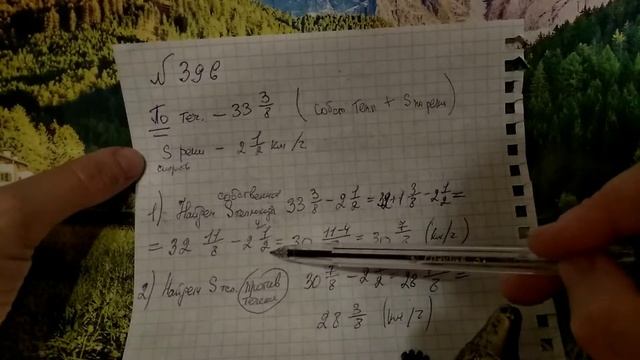 N 39в
По теч. – 33 3/8 (собст Тепл + S реки)
S реки – 2 1/2 км/ч
скорость
собственно
1) Найдём S теплохода 33 3/8 – 2 1/2 = 32 + 1 3/8 – 2 1/2 =
= 32 11/8 – 2 1/2 = 30 11-4/8 = 30 7/8 (км/ч)
2) Найдём S теп. против течения 30 7/8 – 2 1/2 =
28 3/8 (км/ч)